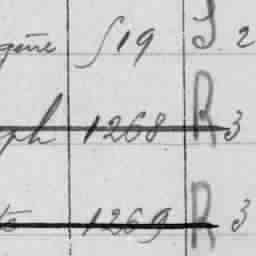 gène 519 S. 2
ph 1268 R 3
te 1269 R 3